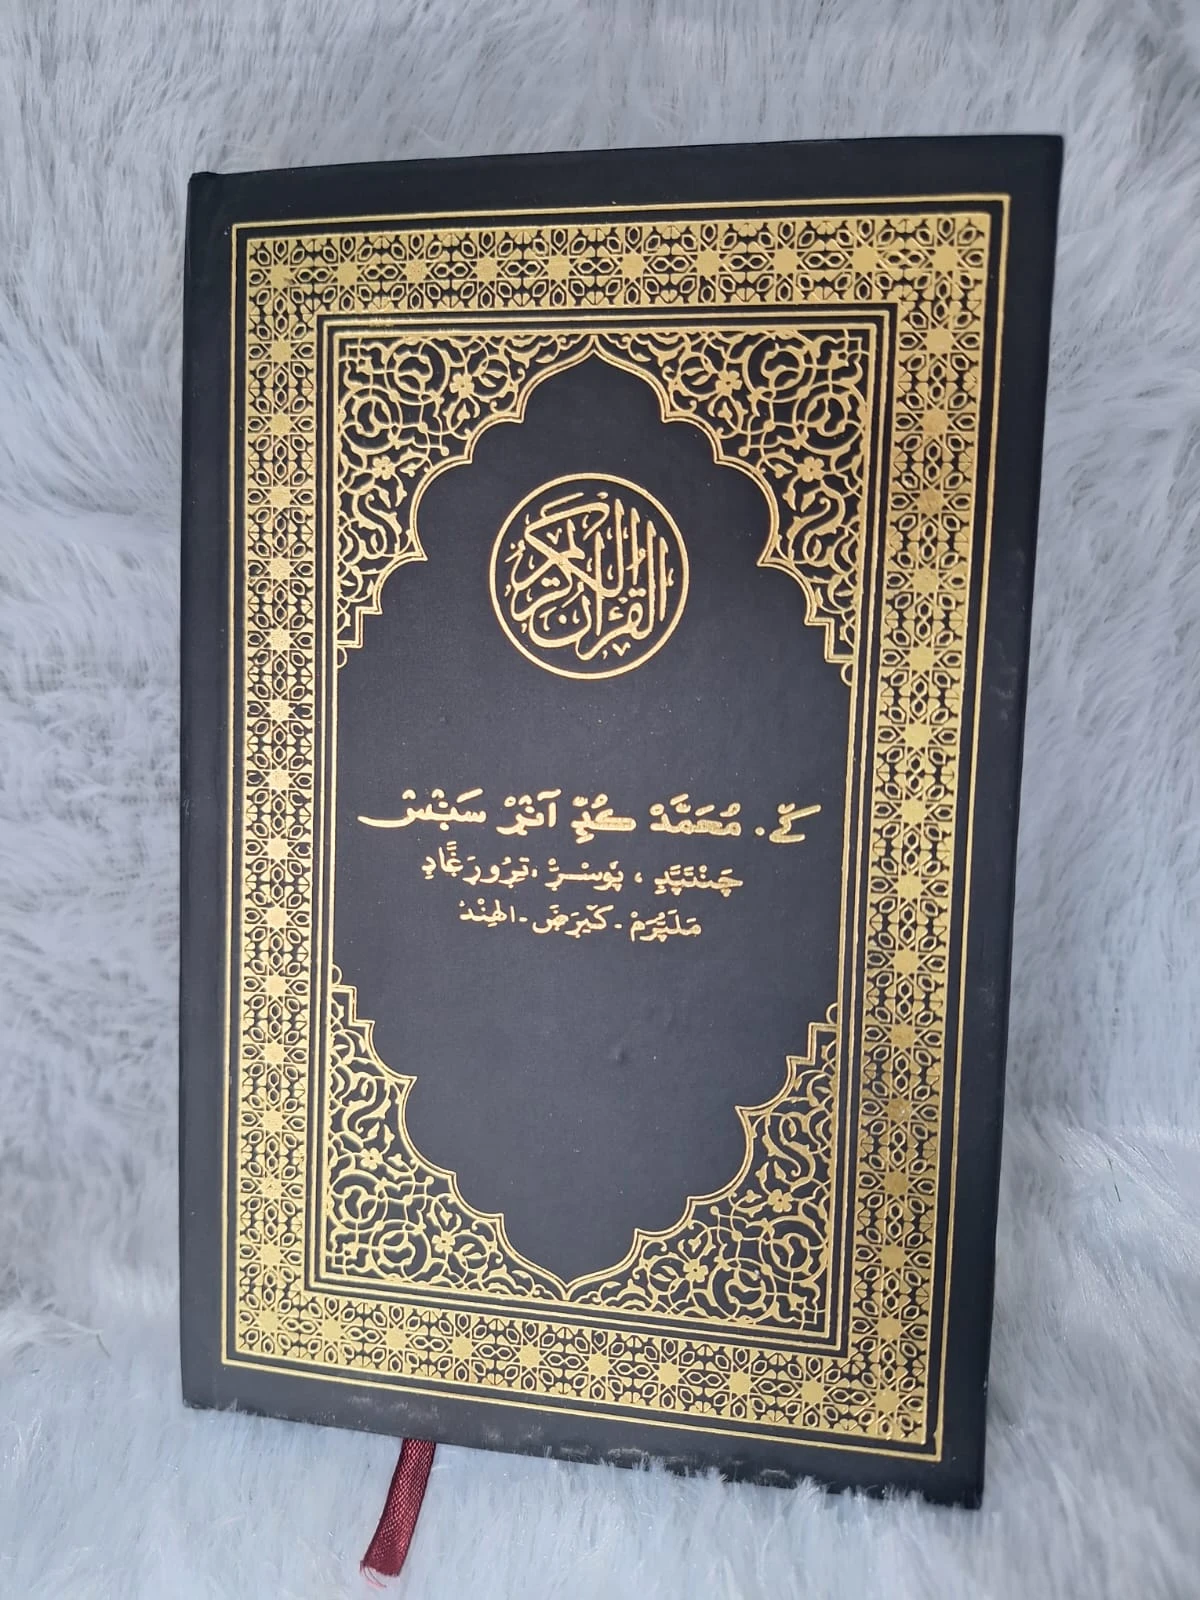 القرآن الكريم
كے. مُحَمَّدْ كُٹِّ آنڑْ سَنْسْ
چَنْتَپَّڊِ ، پَوسْرّْ ،تِرُورَڠَّاڊِ
مَلَپُّرَمْ - كيرَۻَ - الهِنْد